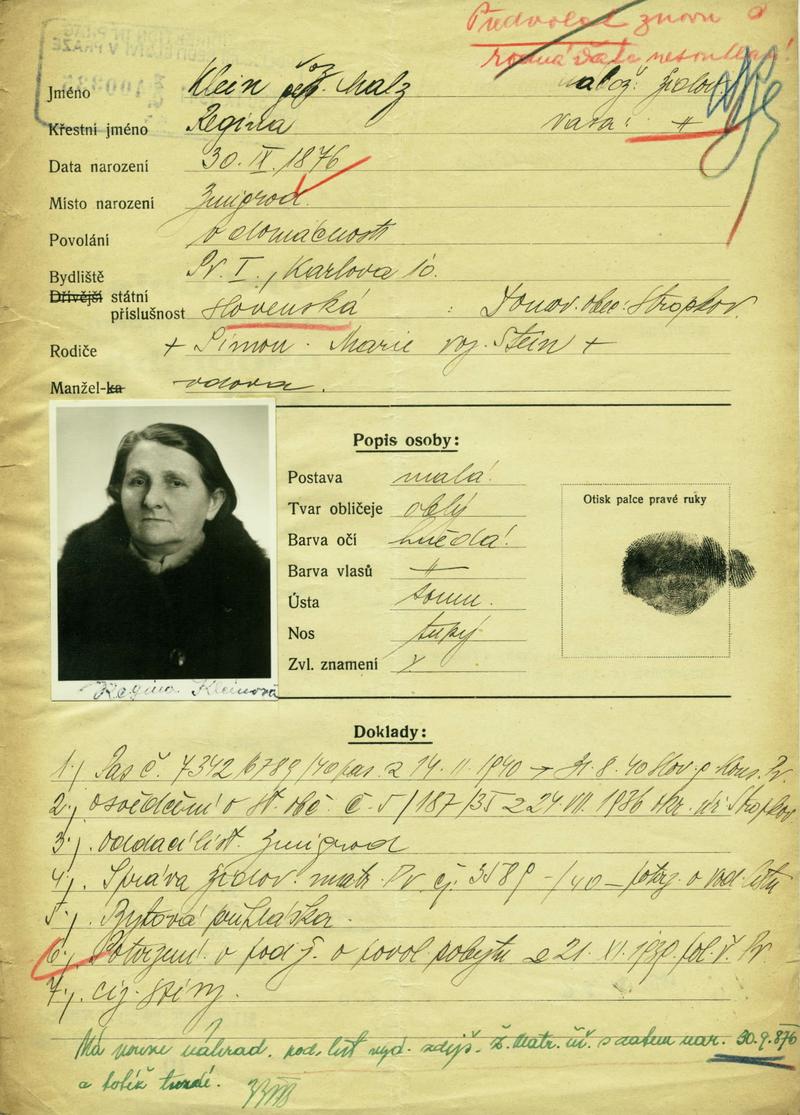 Předvolat znovu
rodná data nesouhlasí
Jméno Klein roz. Malz nábož: židov.
Křestní jméno Regina rasa: "
Data narození 30. IX. 1876
Místo narození Zmigrod
Povolání v domácnosti
Bydliště Pr. I., Karlova 10.
Dřívější státní
příslušnost slovenská : Domov. obec: Stropkov.
Rodiče + Simon - Marie roz. Stein +
Manžel-ka vdova.
Popis osoby:
Postava malá
Tvar obličeje oblý
Barva očí hnědá
Barva vlasů "
Ústa soum.
Nos tupý
Zvl. znamení
Otisk palce pravé ruky
Regina Kleinová
Doklady:
1.). Pas č. 7342/6789/40 pas. z 14. II. 1940 Slov. Kons. Pr.
2.). osvědčení o st. obč. č. 5/187/35 z 24. VII. 1936 okr. úř. Stropkov
3.). oddací list Zmigrod
4.). Správa židov. matr. Pr. čj. 3589-/40 - potvrz. o rod. listu
5.). Bytová přihláška.
6.). Potvrzení o pod. ž. o povol. pobytu z 21. XI. 1939 pol. ř. Pr
7.). ciz.
Má pouze náhrad. rod. list vyd. zdejš. ž. matr. úř. s datem nar. 30.9.876
a totéž tvrdí.